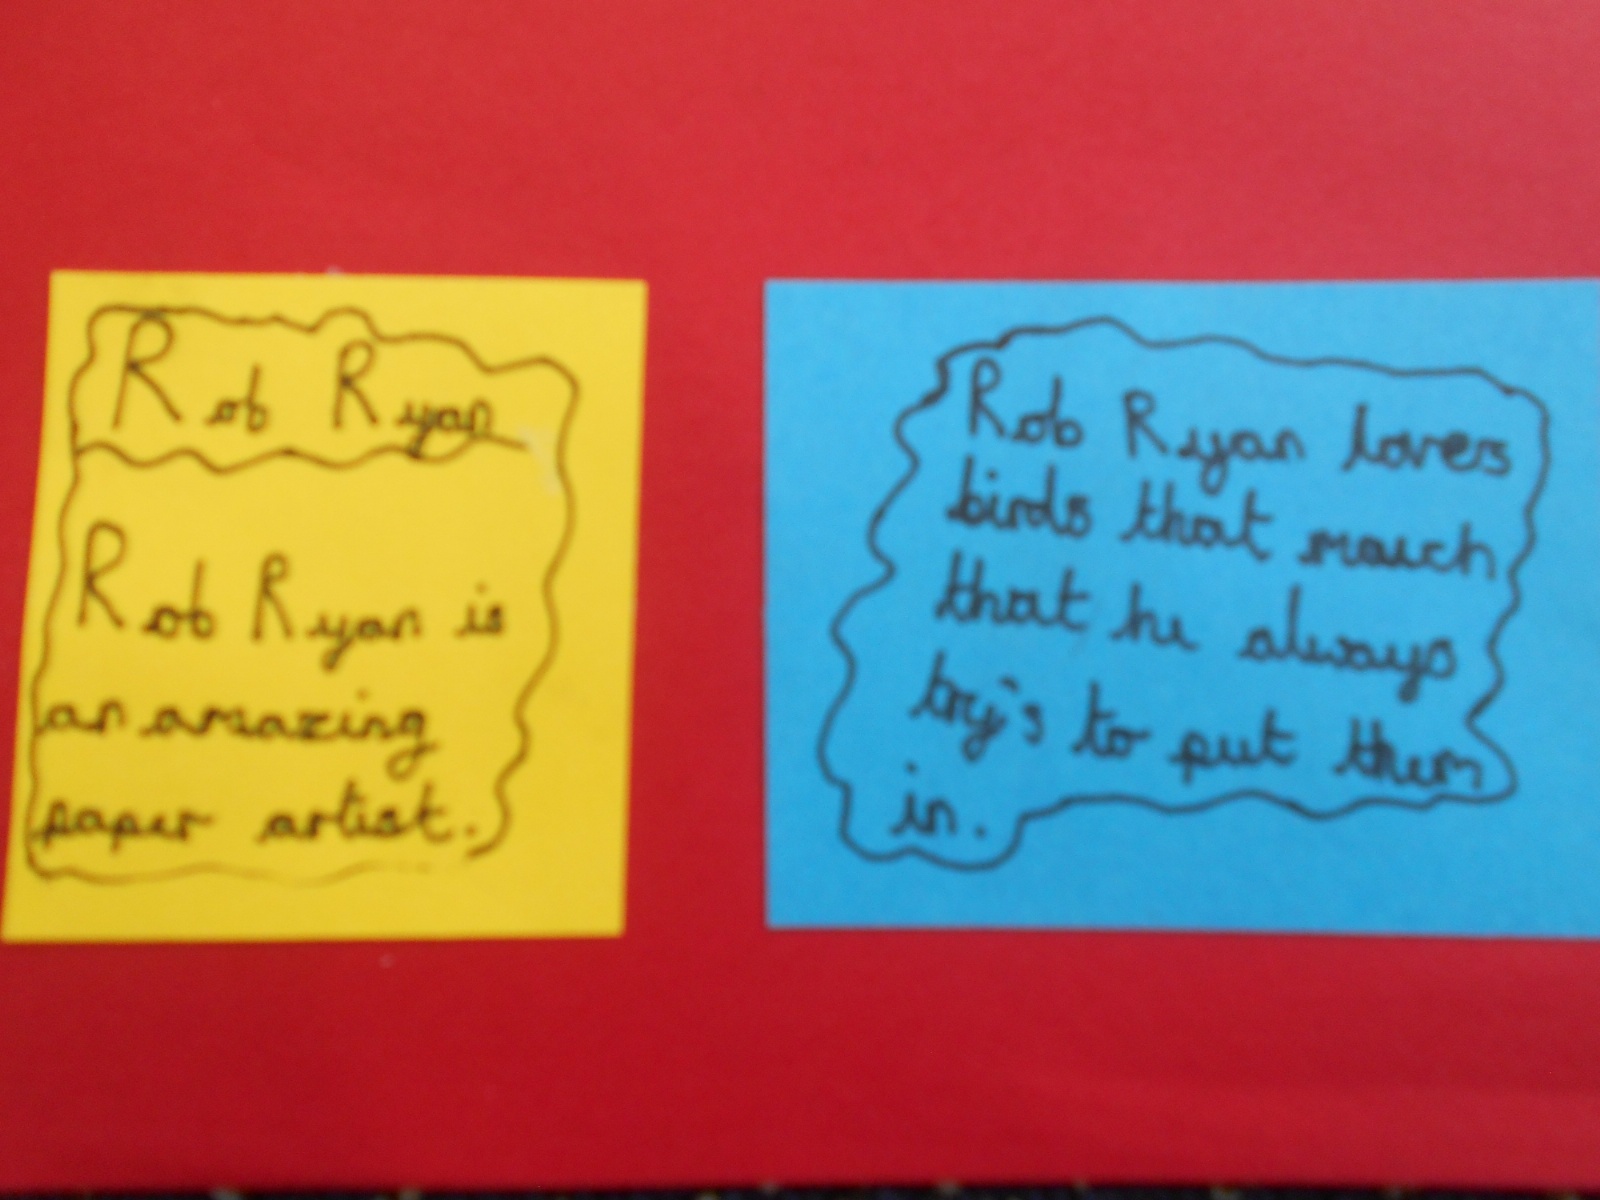 Rob Ryan
Rob Ryan is
an amazing
paper artist.
Rob Ryan loves
birds that much
that he always
try's to put them
in.